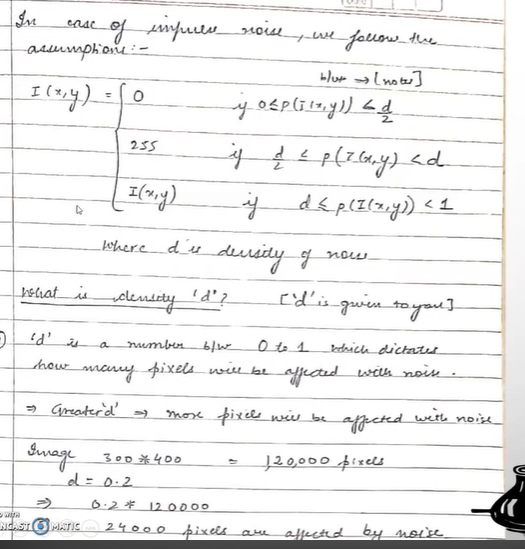 In case of impulse noise, we follow the
assumptions:-
b/w → [notes]
I(x,y) = { 0 if 0≤p(I(x,y)) < d/2
255 if d/2 ≤ p(I(x,y) < d
I(x,y) if d ≤ p(I(x,y)) < 1
where d is density of noise
What is density 'd'? ['d' is given to you]
'd' is a number b/w 0 to 1 which dictates
how many pixels will be affected with noise.
⇒ Greater 'd' ⇒ more pixels will be affected with noise
Image 300*400 = 1,20,000 pixels
d = 0.2
⇒ 0.2 * 120000
24000 pixels are affected by noise